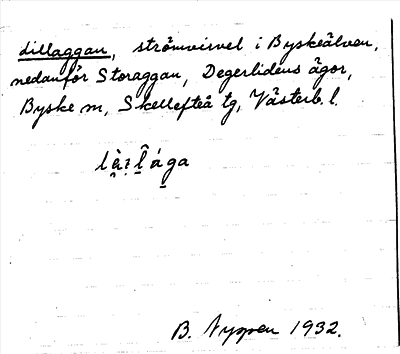 dillaggan, strömvirvel i Byskeälven,
nedanför Storaggan, Degerlidens ägor,
Byske sn, Skellefteå tg, Västerb. l.
B. Nyman 1932.